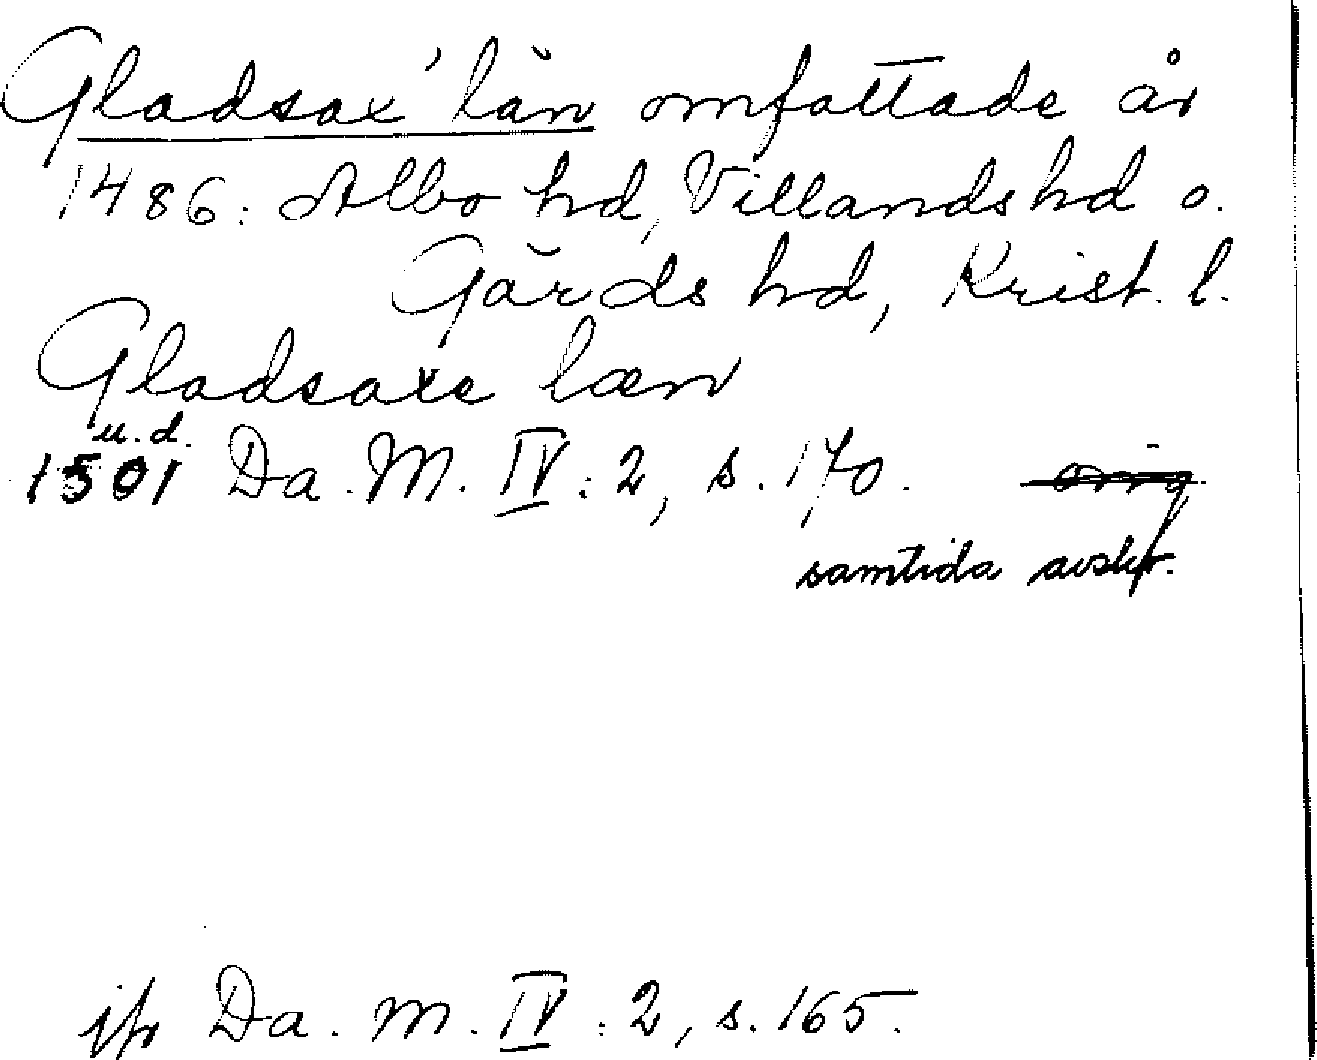 Gladsax' län omfattade år
1486: Albo hd, Villands hd o.
Gärds hd, Krist. l.
Gladsaxe læn
u.d.
1501 Da. M. IV: 2, s. 170. orig
samtida avskr.
jfr Da. M. IV: 2, s. 165.